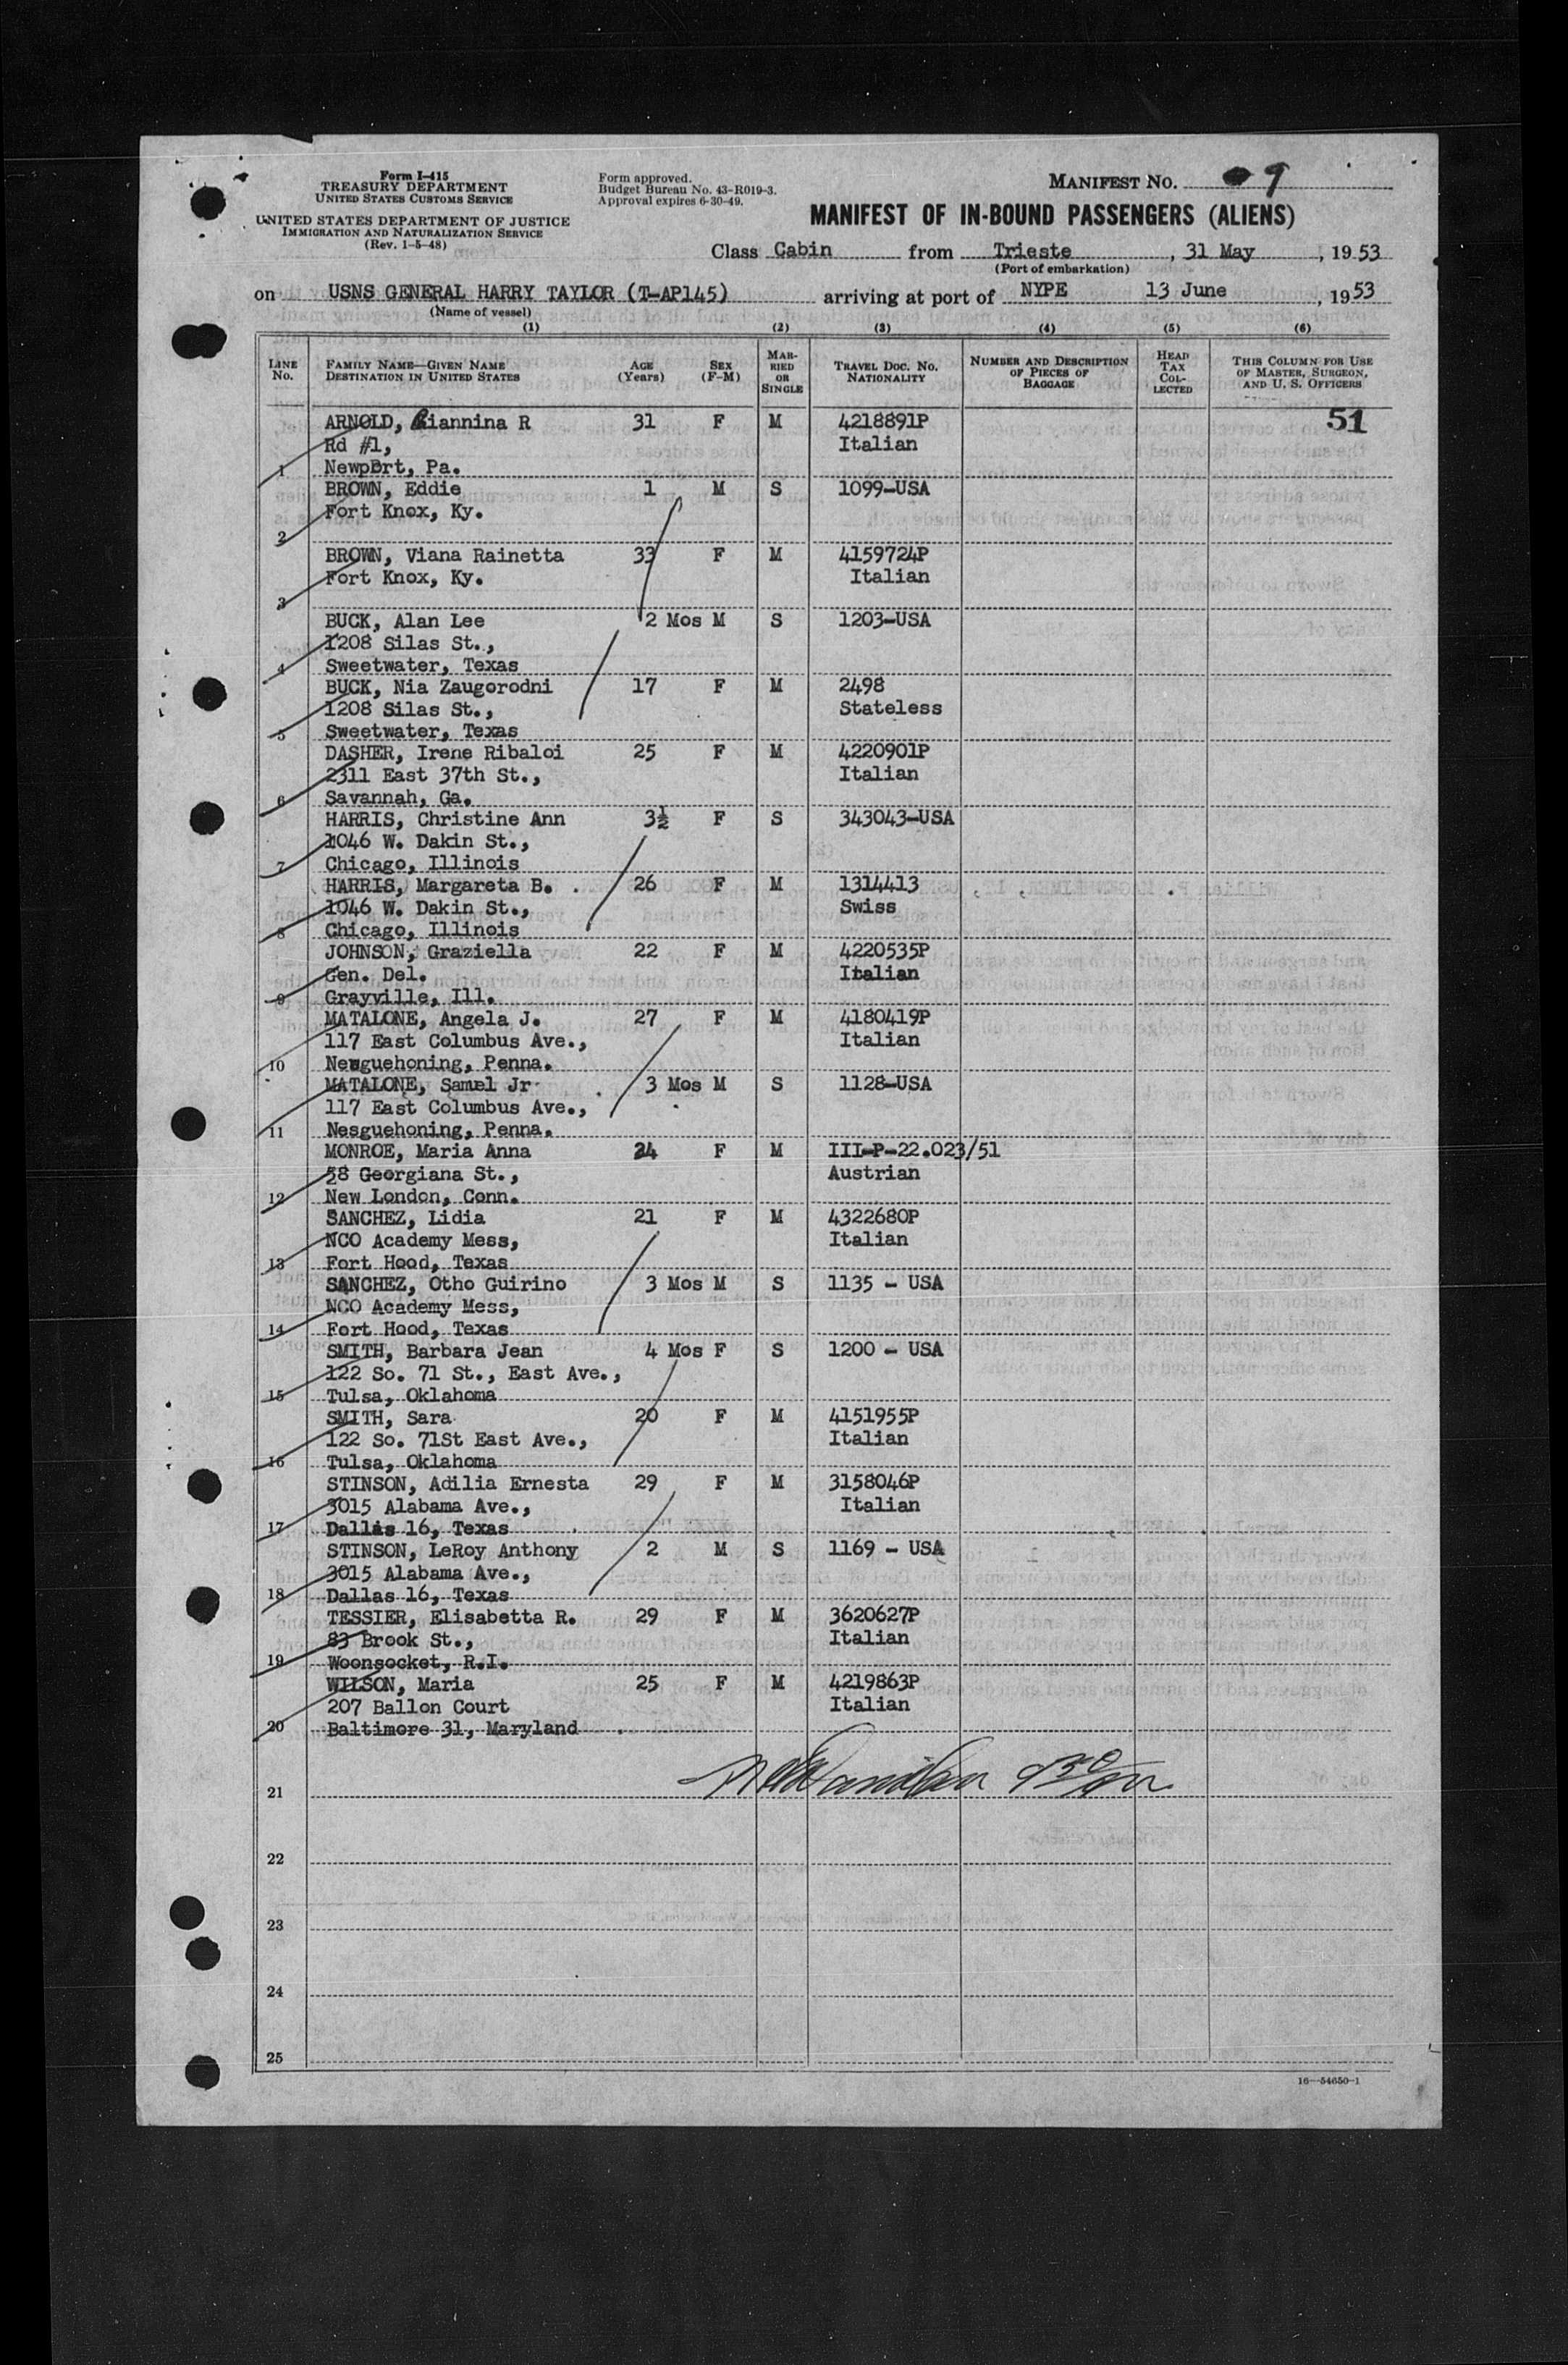 Form I-415
TREASURY DEPARTMENT
UNITED STATES CUSTOMS SERVICE
UNITED STATES DEPARTMENT OF JUSTICE
IMMIGRATION AND NATURALIZATION SERVICE
(Rev. 1-5-48)
Form approved.
Budget Bureau No. 43-R019-3.
Approval expires 6-30-49.
MANIFEST NO. 9
MANIFEST OF IN-BOUND PASSENGERS (ALIENS)
Class Cabin from Trieste, 31 May, 1953
(Port of embarkation)
on USNS GENERAL HARRY TAYLOR (T-AP145) arriving at port of NYPE 13 June, 1953
(Name of vessel)
(1) (2) (3) (4) (5) (6)
LINE No. FAMILY NAME—GIVEN NAME DESTINATION IN UNITED STATES AGE (Years) SEX (F-M) MARRIED OR SINGLE TRAVEL DOC. NO. NATIONALITY NUMBER AND DESCRIPTION OF PIECES OF BAGGAGE HEAD TAX COLLECTED THIS COLUMN FOR USE OF MASTER, SURGEON, AND U. S. OFFICERS
ARNOLD, Giannina R 31 F M 4218891P 51
Rd #1, Italian
1 Newport, Pa.
BROWN, Eddie 1 M S 1099-USA
Fort Knox, Ky.
2
BROWN, Viana Rainetta 33 F M 4159724P
Fort Knox, Ky. Italian
3
BUCK, Alan Lee 2 Mos M S 1203-USA
1208 Silas St.,
4 Sweetwater, Texas
BUCK, Nia Zaugorodni 17 F M 2498
1208 Silas St., Stateless
5 Sweetwater, Texas
DASHER, Irene Ribaloi 25 F M 4220901P
2311 East 37th St., Italian
6 Savannah, Ga.
HARRIS, Christine Ann 3½ F S 343043-USA
1046 W. Dakin St.,
7 Chicago, Illinois
HARRIS, Margareta B. 26 F M 1314413
1046 W. Dakin St., Swiss
8 Chicago, Illinois
JOHNSON, Graziella 22 F M 4220535P
Gen. Del. Italian
9 Grayville, Ill.
MATALONE, Angela J. 27 F M 4180419P
117 East Columbus Ave., Italian
10 Nesguehoning, Penna.
MATALONE, Samuel Jr 3 Mos M S 1128-USA
117 East Columbus Ave.,
11 Nesguehoning, Penna.
MONROE, Maria Anna 24 F M III-P-22.023/51
58 Georgiana St., Austrian
12 New London, Conn.
SANCHEZ, Lidia 21 F M 4322680P
NCO Academy Mess, Italian
13 Fort Hood, Texas
SANCHEZ, Otho Guirino 3 Mos M S 1135 - USA
NCO Academy Mess,
14 Fort Hood, Texas
SMITH, Barbara Jean 4 Mos F S 1200 - USA
122 So. 71 St., East Ave.,
15 Tulsa, Oklahoma
SMITH, Sara 20 F M 4151955P
122 So. 71St East Ave., Italian
16 Tulsa, Oklahoma
STINSON, Adilia Ernesta 29 F M 3158046P
3015 Alabama Ave., Italian
17 Dallas 16, Texas
STINSON, LeRoy Anthony 2 M S 1169 - USA
3015 Alabama Ave.,
18 Dallas 16, Texas
TESSIER, Elisabetta R. 29 F M 3620627P
83 Brook St., Italian
19 Woonsocket, R.I.
WILSON, Maria 25 F M 4219863P
207 Ballon Court Italian
20 Baltimore 31, Maryland
21
22
23
24
25
16—54650-1